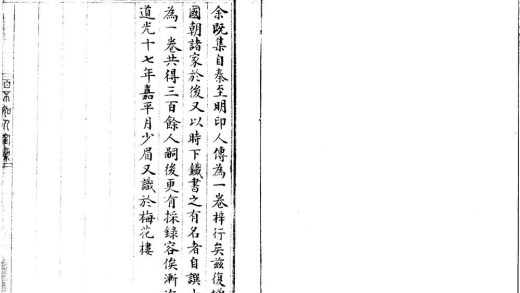 余既集自秦至明印人傳為一卷梓行矣茲復增
國朝諸家於後又以時下鐵書之有名者自譔
為一卷共得三百餘人嗣後更有採錄容俟漸
道光十七年嘉平月少眉又識於梅花樓